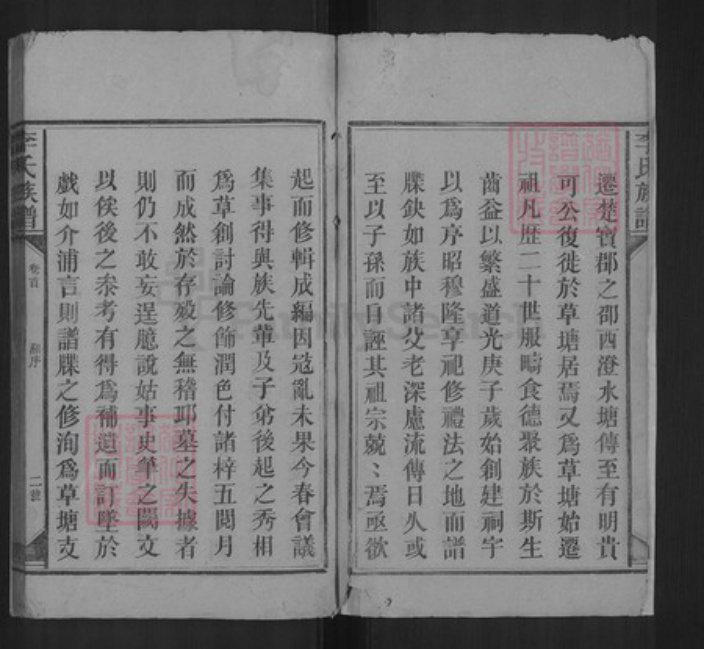 李氏族譜
遷楚寶郡之邵西澄水塘傳至有明貴
可公復徙於草塘居焉又爲草塘始遷
祖凡歷二十世服疇食德聚族於斯生
齒益以繁盛道光庚子歲始創建祠宇
以爲序昭穆隆享祀修禮法之地而譜
牒缺如族中諸父老深慮流傳日久或
至以子孫而日誣其祖宗兢〻焉亟欲
起而修輯成編因寇亂未果今春會議
集事得與族先輩及子弟後起之秀相
爲草創討論修飾潤色付諸梓五閱月
而成然於存歿之無稽邱墓之失據者
則仍不敢妄逞臆說姑事史筆之闕文
以俟後之叅考有得爲補遺而訂墜於
戲如介浦言則譜牒之修洵爲草塘支
李氏族譜
卷首
序
二
FamilySearch